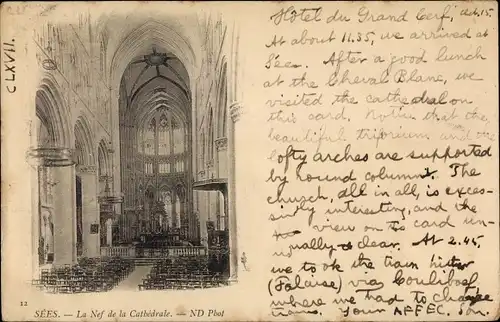 CLXVII.
Hôtel du Grand Cerf, Oct. 15.
At about 11.35, we arrived at
Sées. After a good lunch
at the Cheval Blanc, we
visited the cathedral on
this card. Notice that the
beautiful triforium and
lofty arches are supported
by round columns. The
church, all in all, is exces-
sively interesting, and the
view on the card un-
usually clear. At 2.45,
we to ok the train hither
(Falaise) via Couliboeuf
where we had to change
trains. Your AFFEC. Son.
12 SÉES. — La Nef de la Cathédrale. — ND Phot